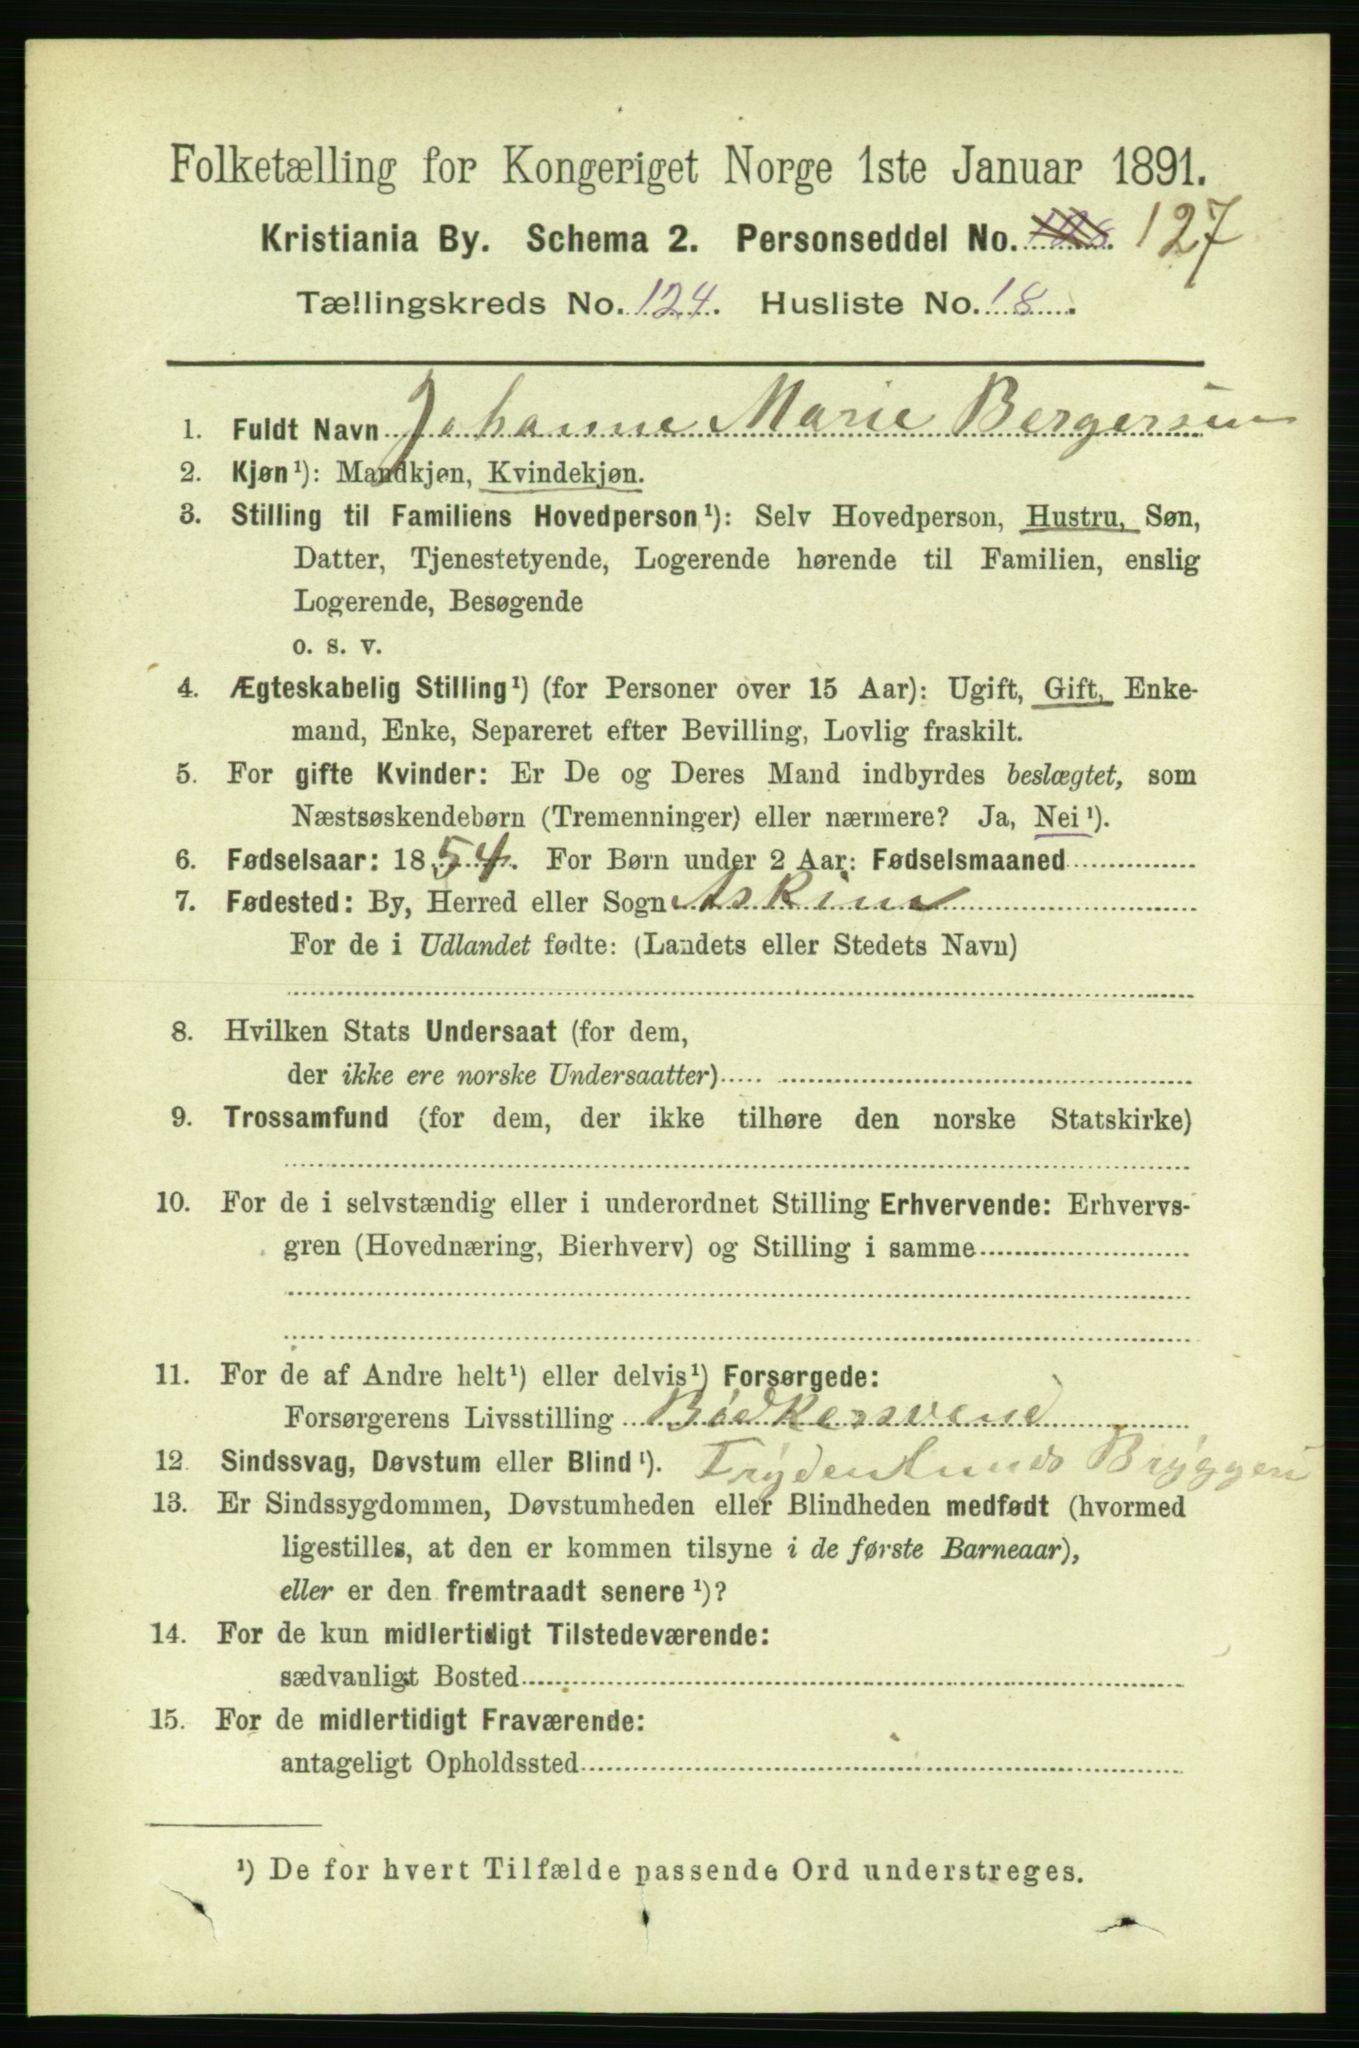 Folketælling for Kongeriget Norge 1ste Januar 1891.
Kristiania By. Schema 2. Personseddel No. 127
Tællingskreds No. 124. Husliste No. 18.
1. Fuldt Navn Johanne Marie Bergersen
2. Kjøn¹): Mandkjøn, Kvindekjøn.
3. Stilling til Familiens Hovedperson¹): Selv Hovedperson, Hustru, Søn,
Datter, Tjenestetyende, Logerende hørende til Familien, enslig
Logerende, Besøgende
o. s. v.
4. Ægteskabelig Stilling¹) (for Personer over 15 Aar): Ugift, Gift, Enke-
mand, Enke, Separeret efter Bevilling, Lovlig fraskilt.
5. For gifte Kvinder: Er De og Deres Mand indbyrdes beslægtet, som
Næstsøskendebørn (Tremenninger) eller nærmere? Ja, Nei¹).
6. Fødselsaar: 1854. For Børn under 2 Aar: Fødselsmaaned
7. Fødested: By, Herred eller Sogn Askim
For de i Udlandet fødte: (Landets eller Stedets Navn)
8. Hvilken Stats Undersaat (for dem,
der ikke ere norske Undersaatter)
9. Trossamfund (for dem, der ikke tilhøre den norske Statskirke)
10. For de i selvstændig eller i underordnet Stilling Erhvervende: Erhvervs-
gren (Hovednæring, Bierhverv) og Stilling i samme
11. For de af Andre helt¹) eller delvis¹) Forsørgede:
Forsørgerens Livsstilling Bødkersvend
12. Sindssvag, Døvstum eller Blind¹). Frydenlunds Bryggeri
13. Er Sindssygdommen, Døvstumheden eller Blindheden medfødt (hvormed
ligestilles, at den er kommen tilsyne i de første Barneaar),
eller er den fremtraadt senere¹)?
14. For de kun midlertidigt Tilstedeværende:
sædvanligt Bosted
15. For de midlertidigt Fraværende:
antageligt Opholdssted
¹) De for hvert Tilfælde passende Ord understreges.